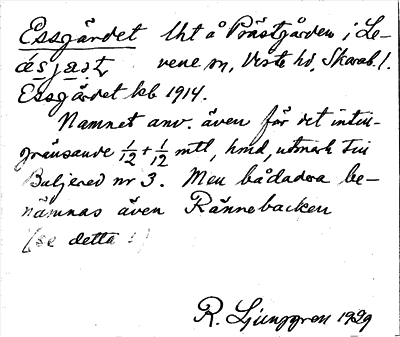 Essgärdet lht å Prästgården i Le-
ǽsjæṣṭ vene sn, Viste hd, Skarab. l.
Essgärdet kb 1914.
Namnet anv. även för det intill-
gränsande 1/12 + 1/12 mtl, hmd, utmark till
Baljered nr 3. Men bådadera be-
nämnas även Rännebacken
(se detta !)
R. Ljunggren 1929